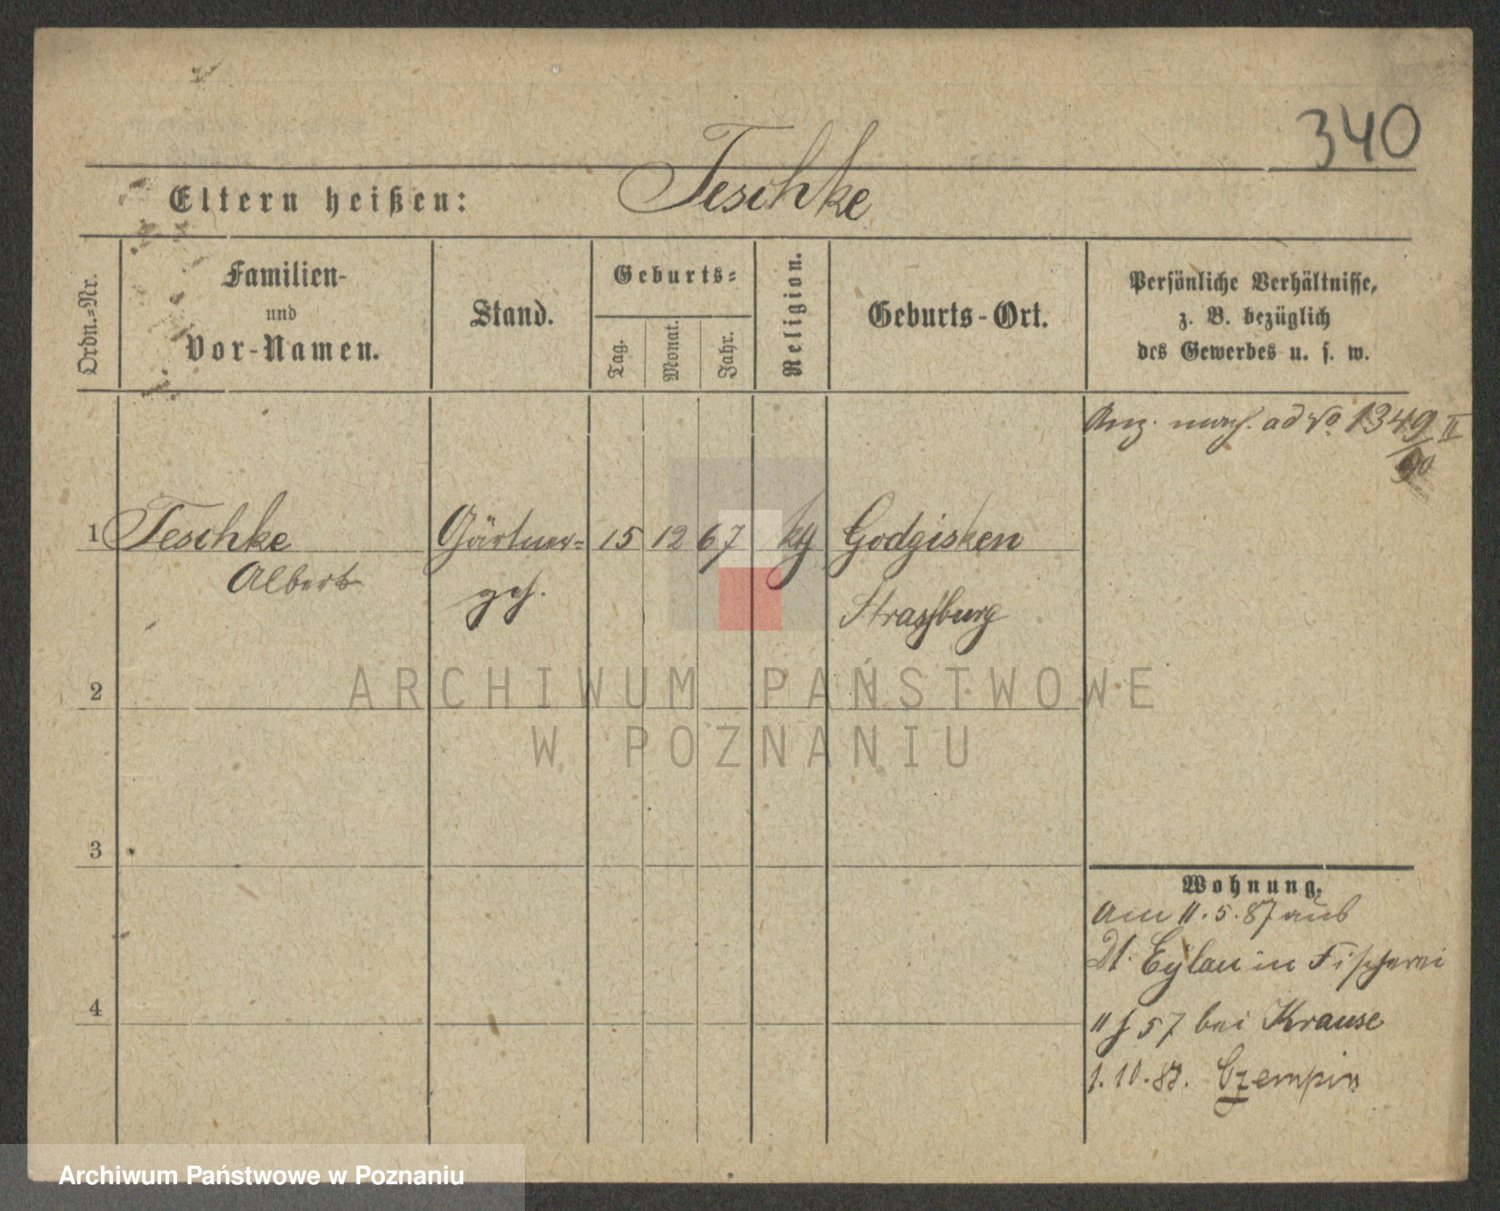 340
Eltern heißen: Teschke
Ordn.-Nr.
Familien-
und
Vor-Namen.
Stand.
Geburts-
Tag.
Monat.
Jahr.
Religion.
Geburts-Ort.
Persönliche Verhältnisse,
z. B. bezüglich
des Gewerbes u. s. w.
ad No 1349 II
90
1 Teschke Gärtner- 15 12 67 Godgisken
Albert
Strassburg
2
ARCHIWUM PAŃSTWOWE
W POZNANIU
3
4
Wohnung.
Am 11.5.87 aus
Dt. Eylau in Fischerei
57 bei Krause
1.10.87. Czempin
Archiwum Państwowe w Poznaniu